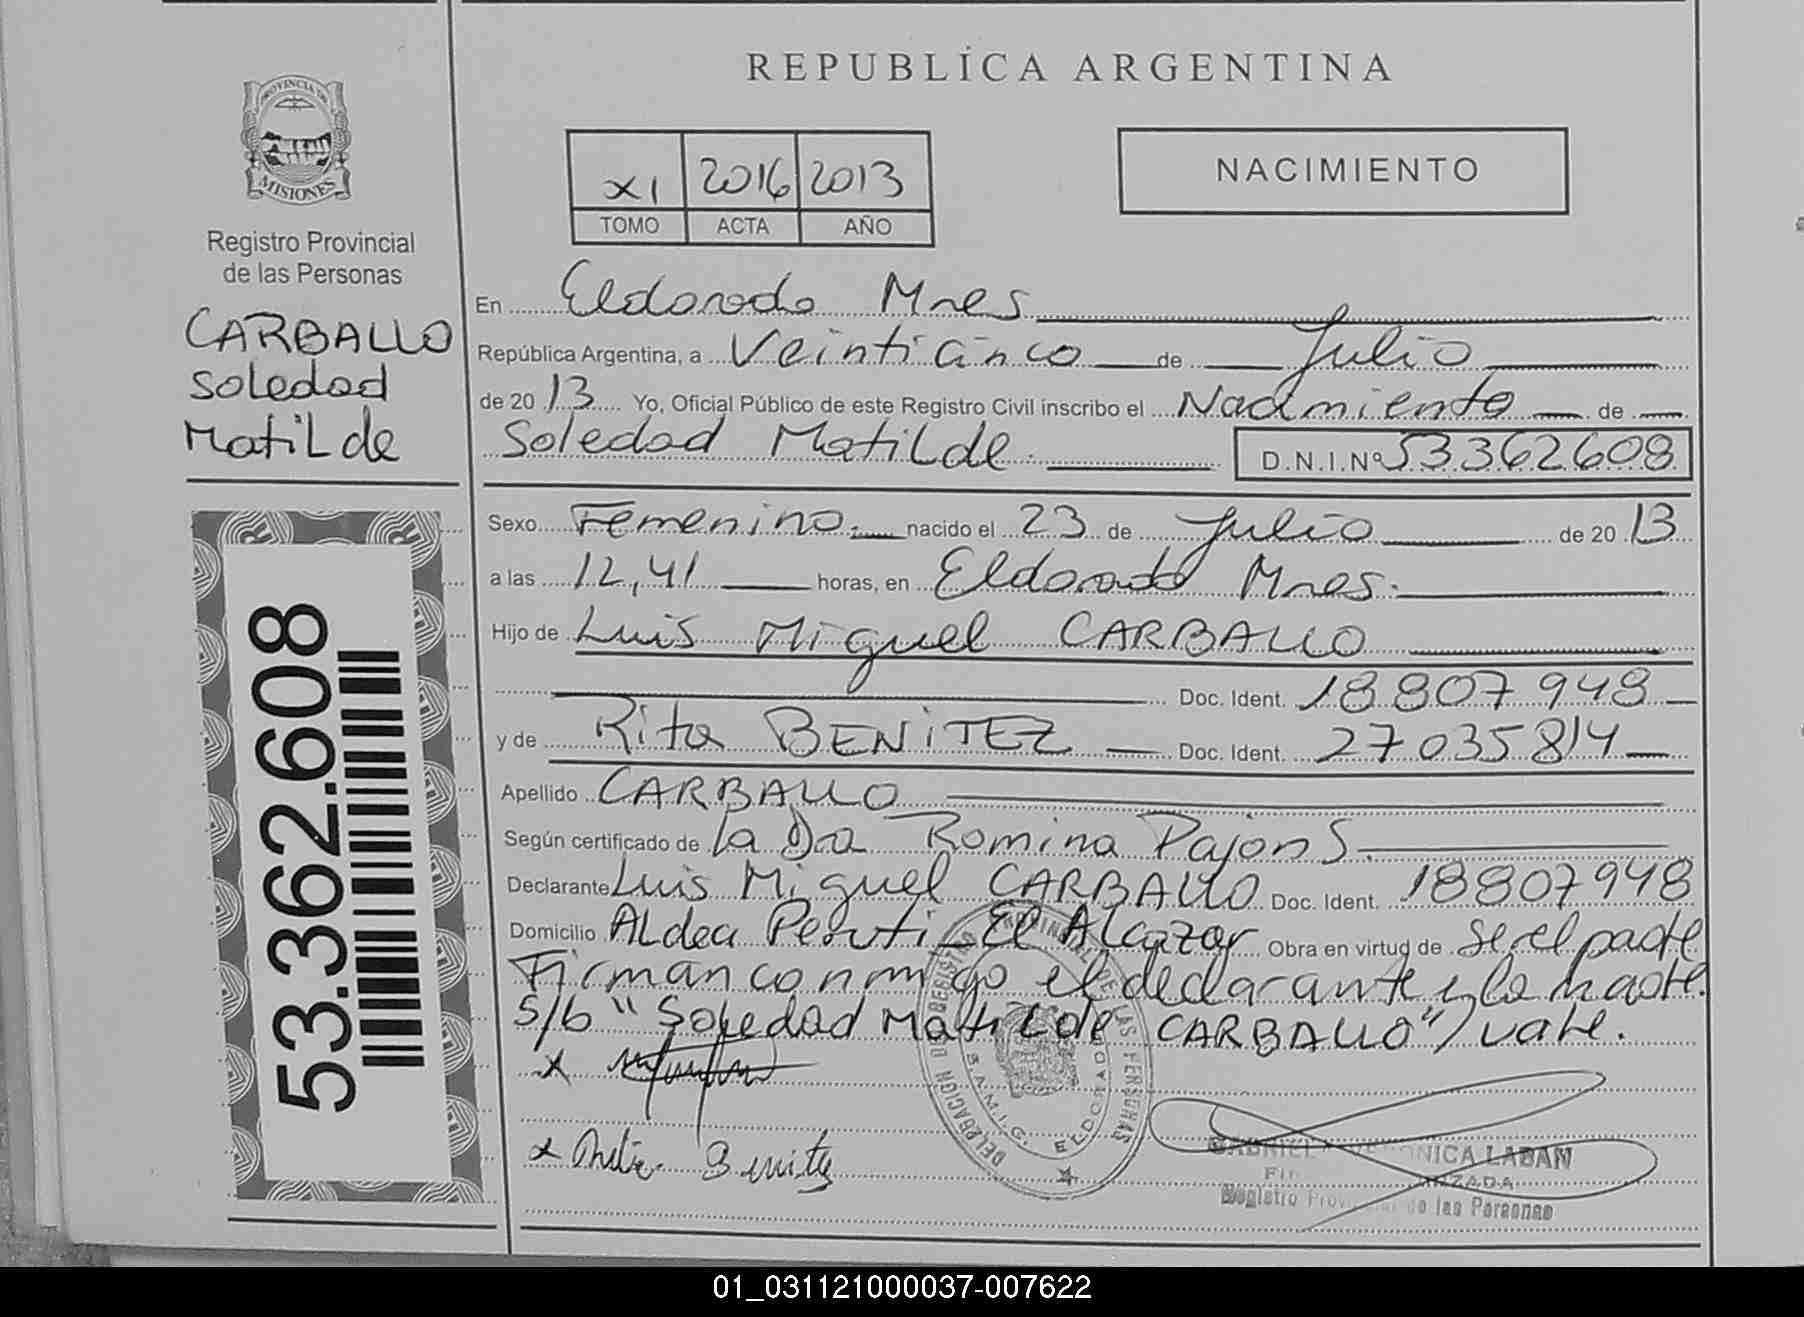 REPUBLÍCA ARGENTINA
PROVINCIA DE
MISIONES
Registro Provincial
de las Personas
CARBALLO
Soledad
Matilde
53.362.608
XI 2016 2013
TOMO ACTA AÑO
NACIMIENTO
En Eldorado Mnes
República Argentina, a Veinticinco de Julio
de 2013 Yo, Oficial Público de este Registro Civil inscribo el Nacimiento de
Soledad Matilde. D.N.I.Nº 53362608
Sexo Femenino. nacido el 23 de Julio de 2013
a las 12,41 horas, en Eldorado Mnes.
Hijo de Luis Miguel CARBALLO
Doc. Ident. 18.807.948
y de Rita BENiTEZ Doc. Ident. 27.035.814
Apellido CARBALLO
Según certificado de la Dra Romina Pajon S.
Declarante Luis Miguel CARBALLO Doc. Ident. 18807948
Domicilio ALdea Peruti - El Alcazar Obra en virtud de ser el padre
Firman conmigo el declarante y la madre.
S/b "Soledad Matilde CARBALLO"/ vale.
x
x Benitez
DELEGACION DE REGISTRO PROVINCIAL DE LAS PERSONAS
S.A.M.I.C. ELDORADO
VERONICA LABAN
Registro Provincial de las Personas
01_031121000037-007622